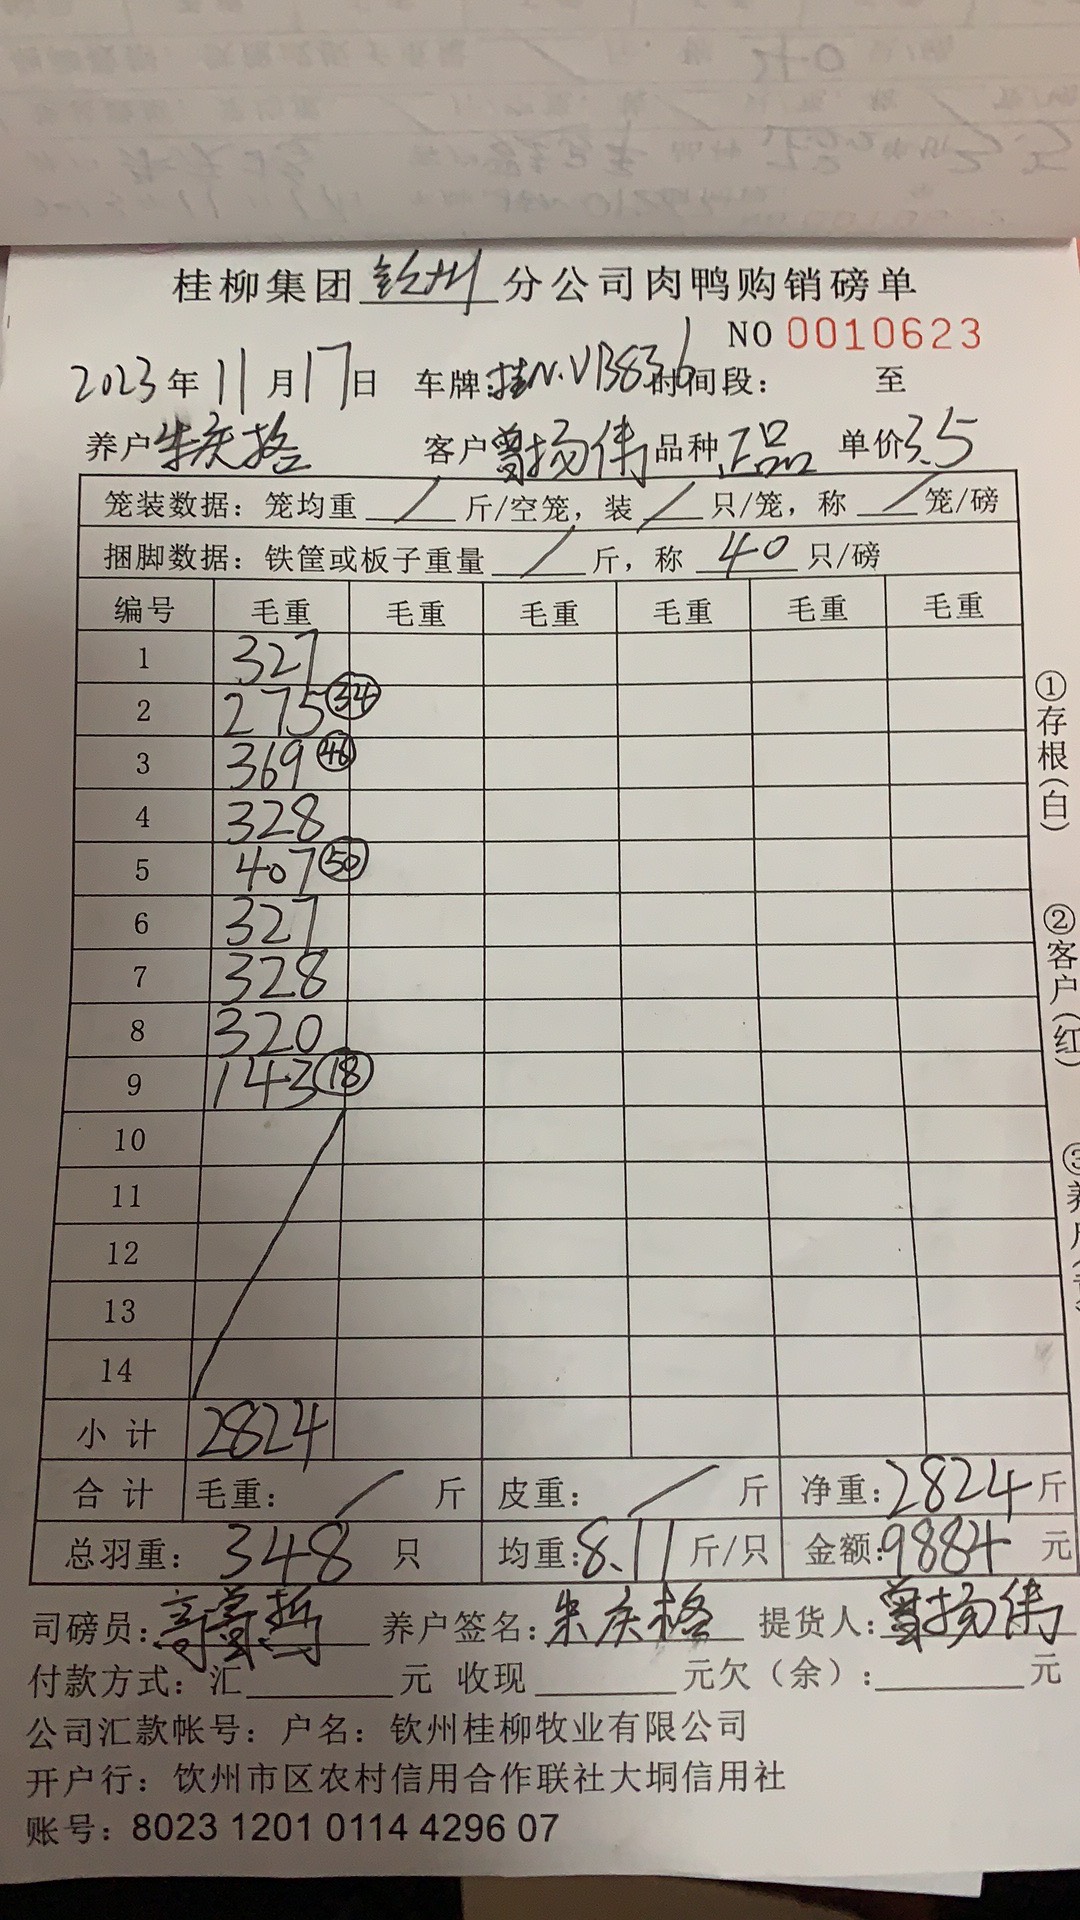 桂柳集团 钦州 分公司肉鸭购销磅单
NO 0010623
2023年 11月17日 车牌:桂N.VB836 时间段: 至
养户 朱庆格 客户 曾扬伟 品种 正品 单价 3.5
笼装数据: 笼均重 / 斤/空笼, 装 / 只/笼, 称 / 笼/磅
捆脚数据: 铁筐或板子重量 / 斤, 称 40 只/磅
编号 毛重 毛重 毛重 毛重 毛重 毛重
1 327
2 275 34
3 369 46
4 328
5 407 50
6 327
7 328
8 320
9 143 18
10
11
12
13
14
小计 2824
合计 毛重: / 斤 皮重: / 斤 净重:2824斤
总羽重: 348 只 均重:8.11斤/只 金额:9884 元
司磅员: 养户签名:朱庆格 提货人:曾扬伟
付款方式: 汇 元 收现 元欠(余): 元
公司汇款帐号: 户名: 钦州桂柳牧业有限公司
开户行: 钦州市区农村信用合作联社大垌信用社
账号: 8023 1201 0114 4296 07
①存根(白)
②客户(红)